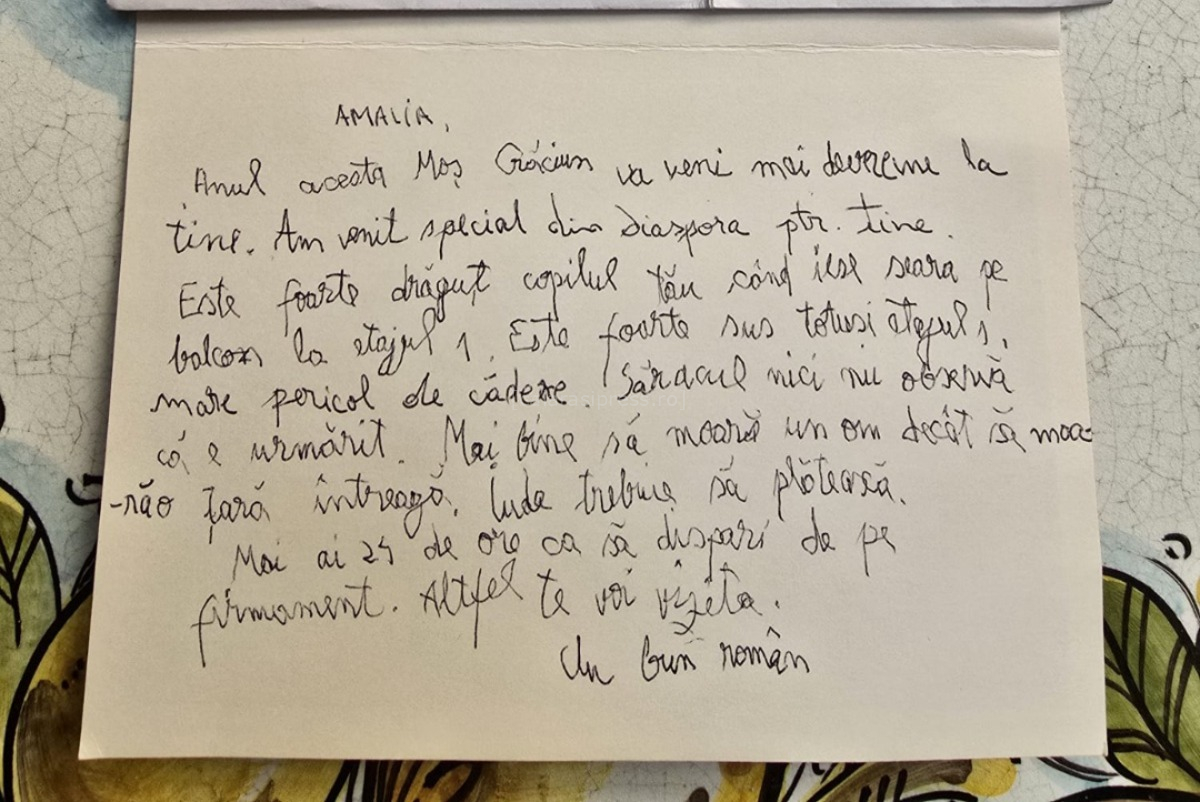 AMALIA,
Anul acesta Moș Crăciun va veni mai devreme la
tine. Am venit special din Diaspora ptr. tine.
Este foarte drăguț copilul tău când iese seara pe
balcon la etajul 1. Este foarte sus totuși etajul 1,
mare pericol de cădere. Săracul nici nu observă
că e urmărit. Mai bine să moară un om decât să moa-
-răo țară întreagă. Iuda trebuie să plătească.
Mai ai 24 de ore ca să dispari de pe
firmament. Altfel te voi vizita.
Un bun român